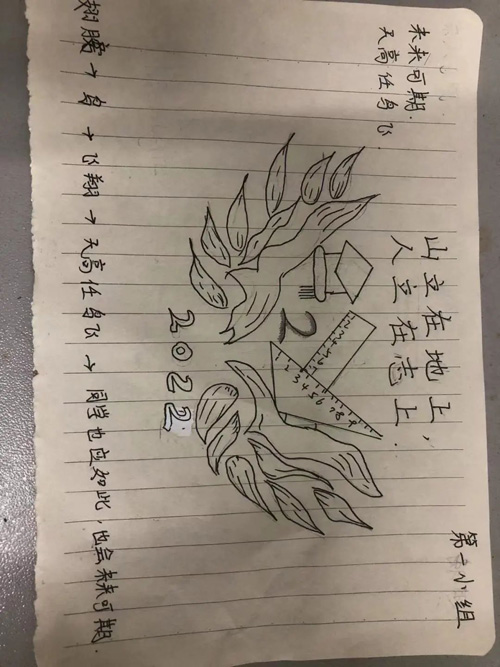 第一小组
未来可期.
天高任鸟飞
山立在地上,
人立在志上.
2
2022
翅膀→鸟→飞翔→天高任鸟飞→同学也应如此,也会未来可期.